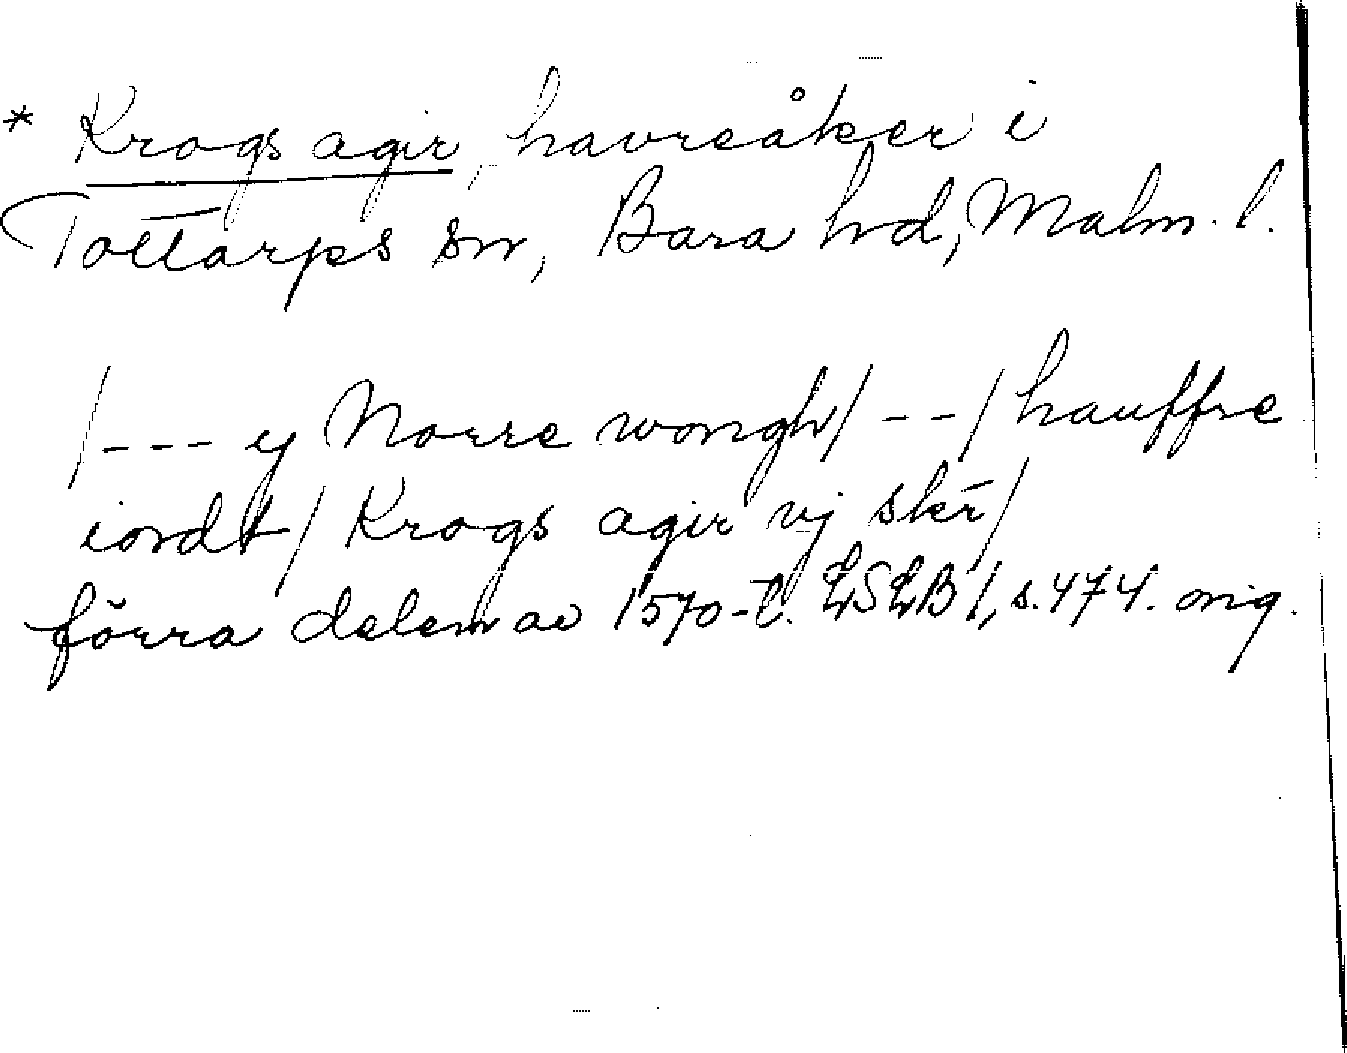 * Krogs agir, havreåker i
Tottarps sn, Bara hd, Malm. l.
/--- ij Norre wongh/ -- / hauffre
iordt / Krogs agir vj skr̄ /
förra delen av 1570-t. LSLB I, s. 474. orig.